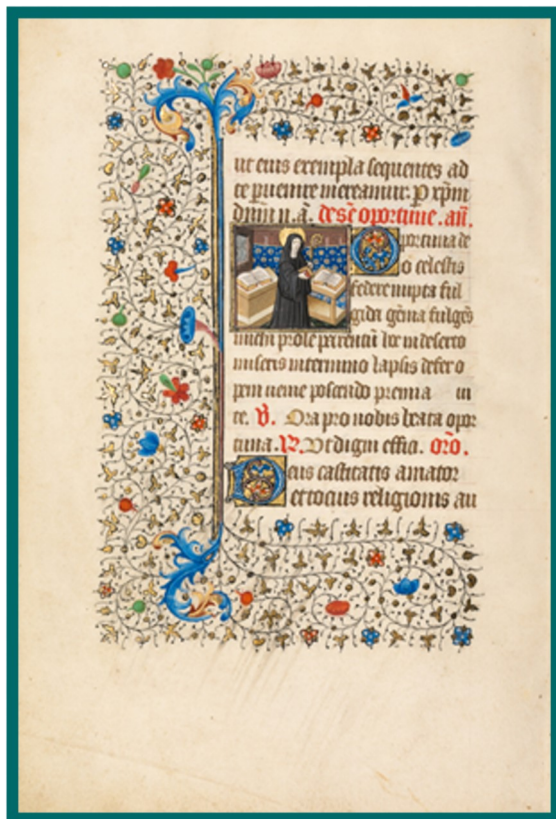 ut eius exempla sequentes ad
te puenire mereamur. P xpm
dnm n. a. de scē oportune. añ.
Oportuna de
o celestis
federe nupta ful
gida gēma fulgēs
prole in deserto
miseris intermino lapsis defer o
pem neme poscendo premia in
te. V. Ora pro nobis beata opor
tuna. R. Vt digni effici. oro.
Deus castitatis amator
et tocius religionis au